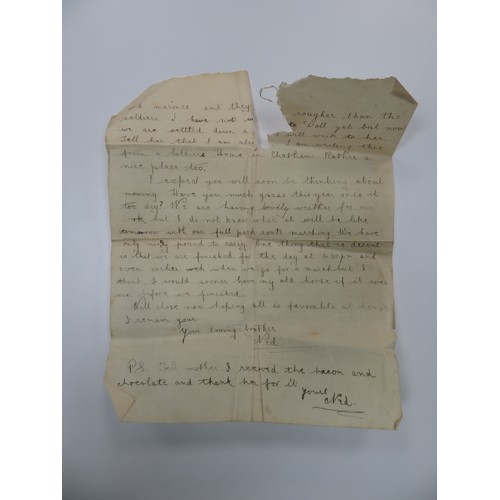 and marines and they rougher than the
soldiers I have not to Doll yet but now
we are settled down a will write to her
Tell her that I am I am writing this
from a Soldiers Home in Chatham Rather a
nice place too.
I expect you will soon be thinking about
mowing. Have you much grass this year or is it
too dry? We are having lovely weather for our
but I do not know what it will be like
tomorrow with our full pack route marching We have
only ninty pound to carry. One thing that is decent
is that we are finished for the day at 4.30 pm and
even earlier when we go for a march but I
think I would sooner have my old horse if it was
before we finished.
Will close now hoping all is favorable at home
I remain your
Your loving brother
Ned
P.S. Tell mother I received the bacon and
chocolate and thank her for it
yours
Ned.